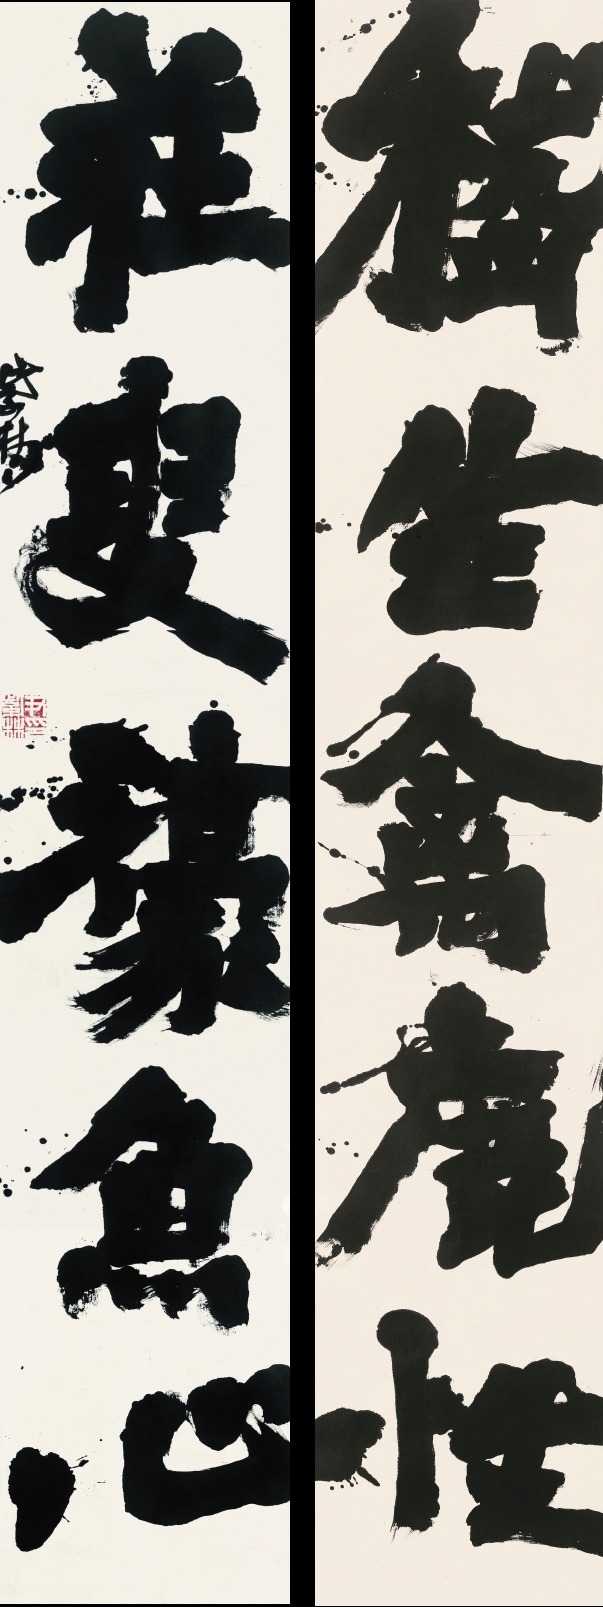 嵇生禽鹿性
莊叟濠魚心